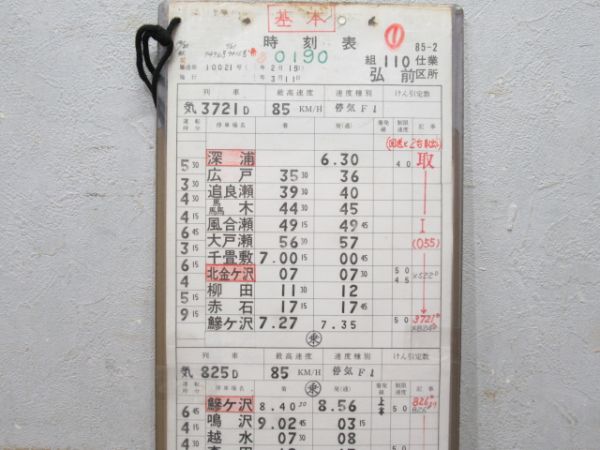 基本
①
時刻表
85-2
0190
組 110 仕業
弘前区所
10021
年2月15日
年3月11日
列車 最高速度 速度種別 けん引定数
気3721D 85 KM/H 停気F1
運転時分 停車場名 着 発(通) 着発線 制限速度 記事
深浦 6.30 40 取
5 30
広戸 35 30 36
3 30
追良瀬 39 30 40
4 30
木 44 30 45
4 30
風合瀬 49 15 49 45
6 45
大戸瀬 56 30 57
3 15
千畳敷 7.00 15 00 45
6 15
北金ケ沢 07 07 30 50 45 X522D
4
柳田 11 30 12
5 15
赤石 17 15 17 45
9 15
鰺ケ沢 7.27 7.35 50 3721D
I
(055)
乗
列車 最高速度 速度種別 けん引定数
気825D 85 KM/H 停気F1
乗
運転時分 停車場名 着 発(通) 着発線 制限速度 記事
鰺ケ沢 8.40 30 8.56 上本 50 826D
6 45
鳴沢 9.02 45 03 15
4
越水 07 08